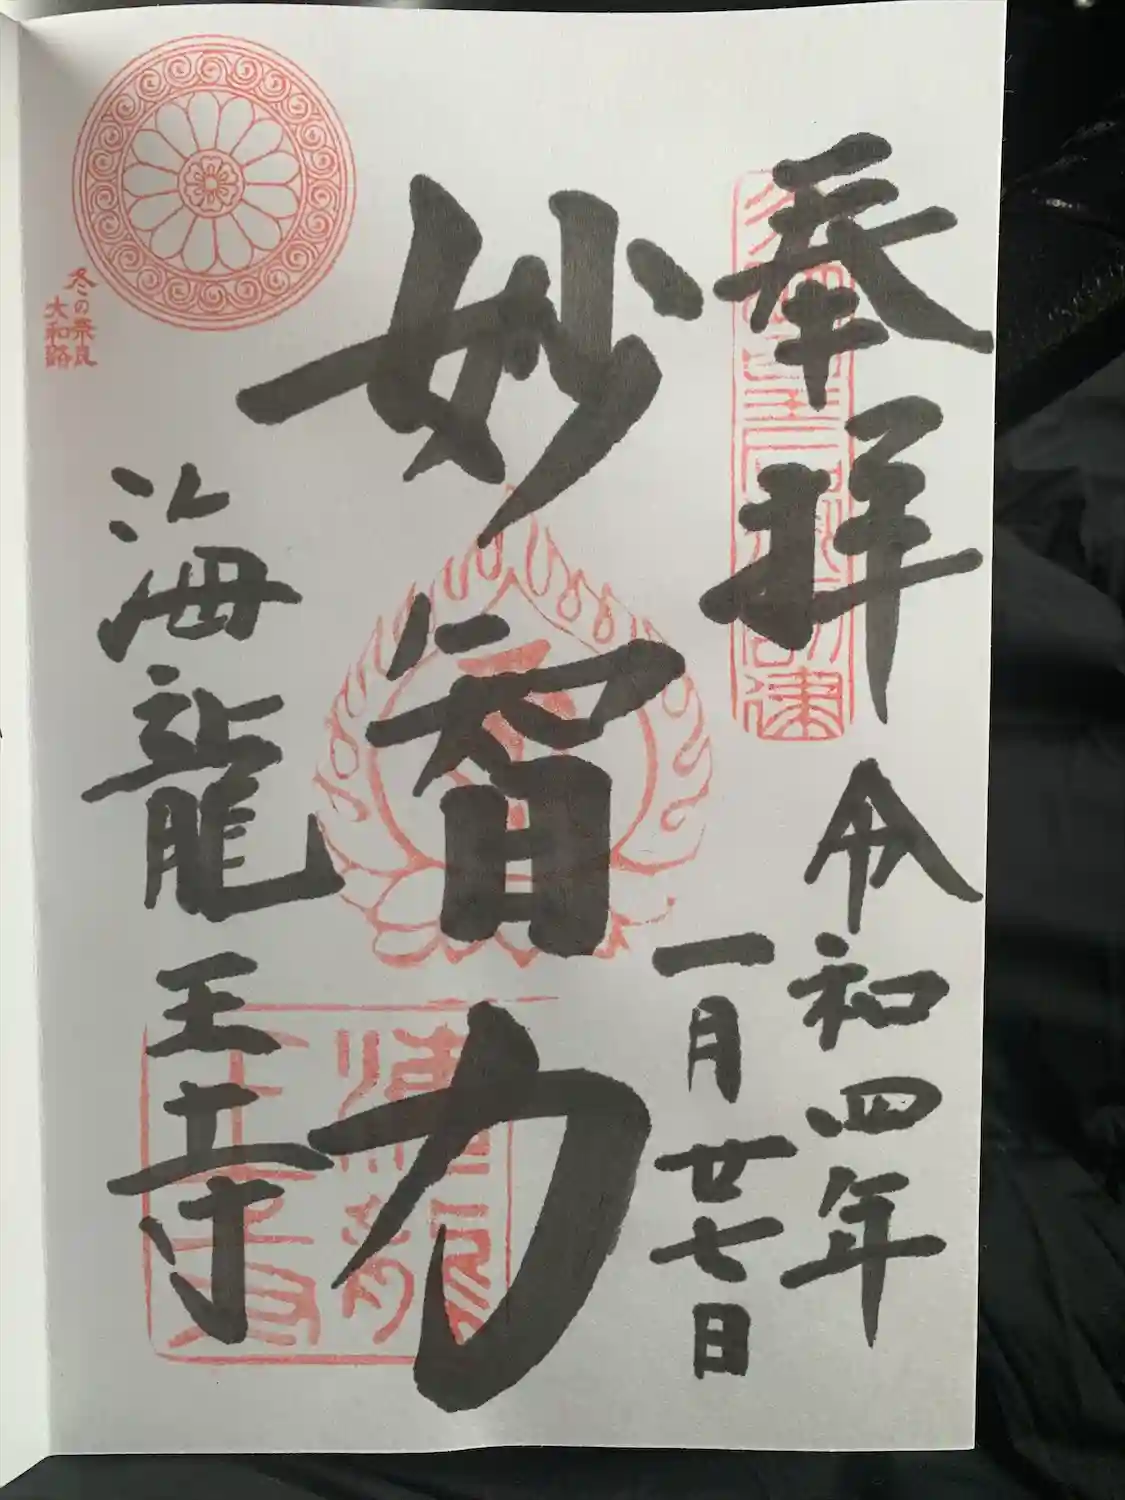 奉拝
令和四年
一月廿七日
妙智力
海龍王寺
冬の奈良
大和路